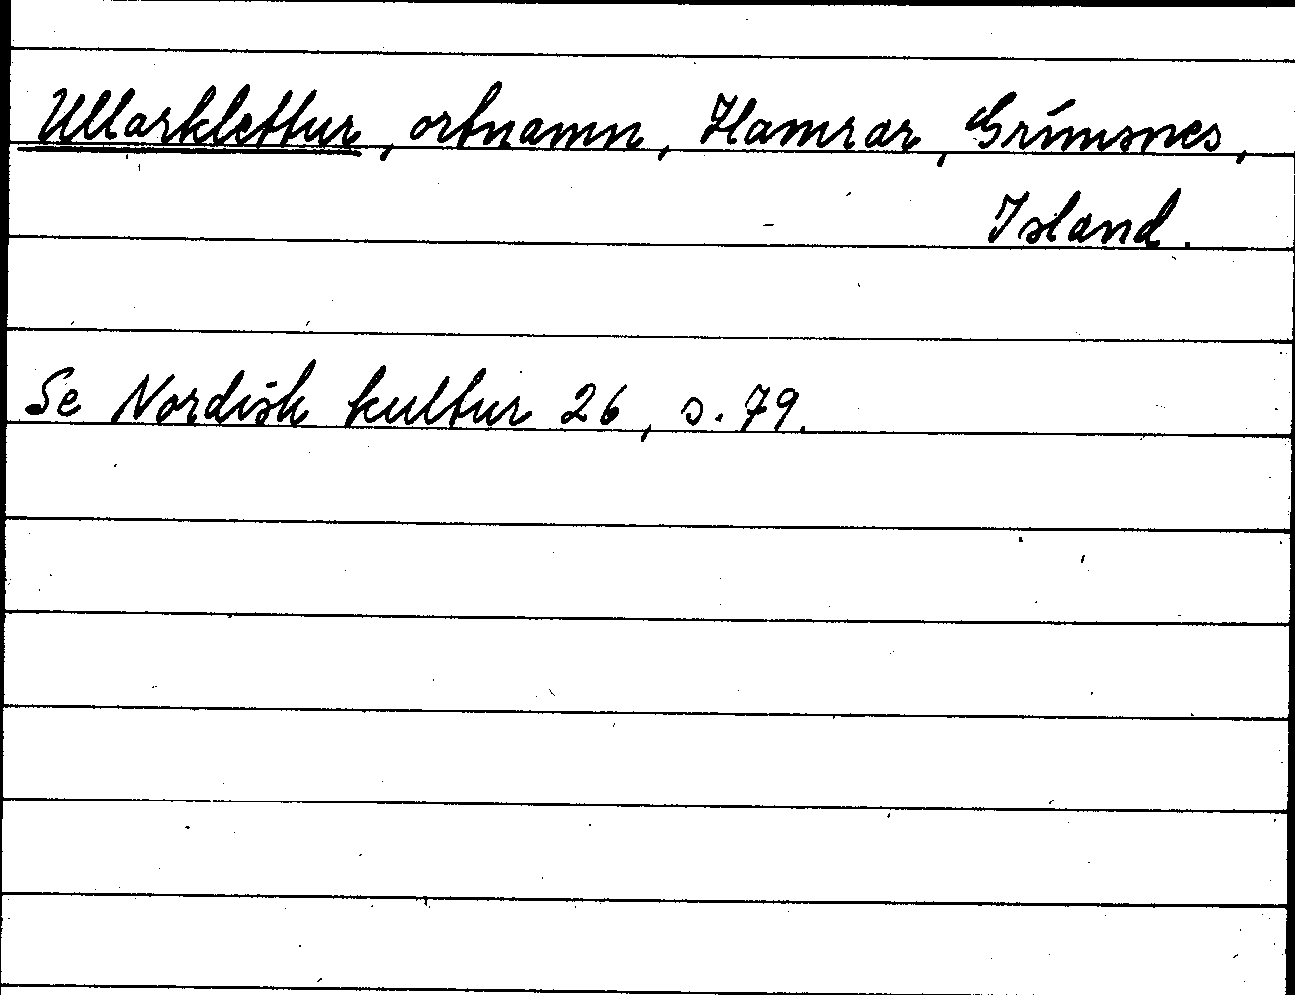 Ullarklettur, ortnamn, Hamrar, Grímsnes,
Island.
Se Nordisk kultur 26, s. 79.